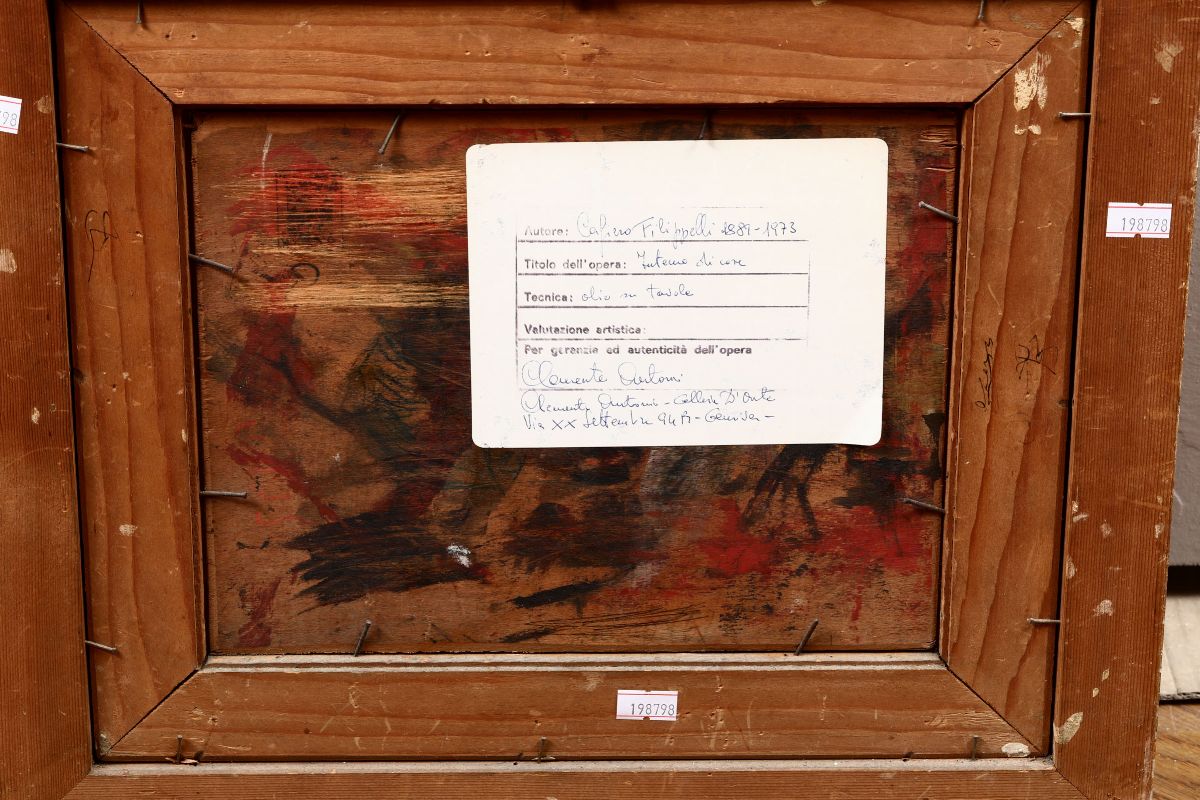 798
Autore: Cafiero Filippelli 1889-1973
Titolo dell'opera: Interno di case
Tecnica: olio su tavola
Valutazione artistica:
Per garanzia ed autenticità dell'opera
Clemente Antoni
Clemente Antoni - Galleria D'Arte
Via XX Settembre 94 - Genova -
198798
198798